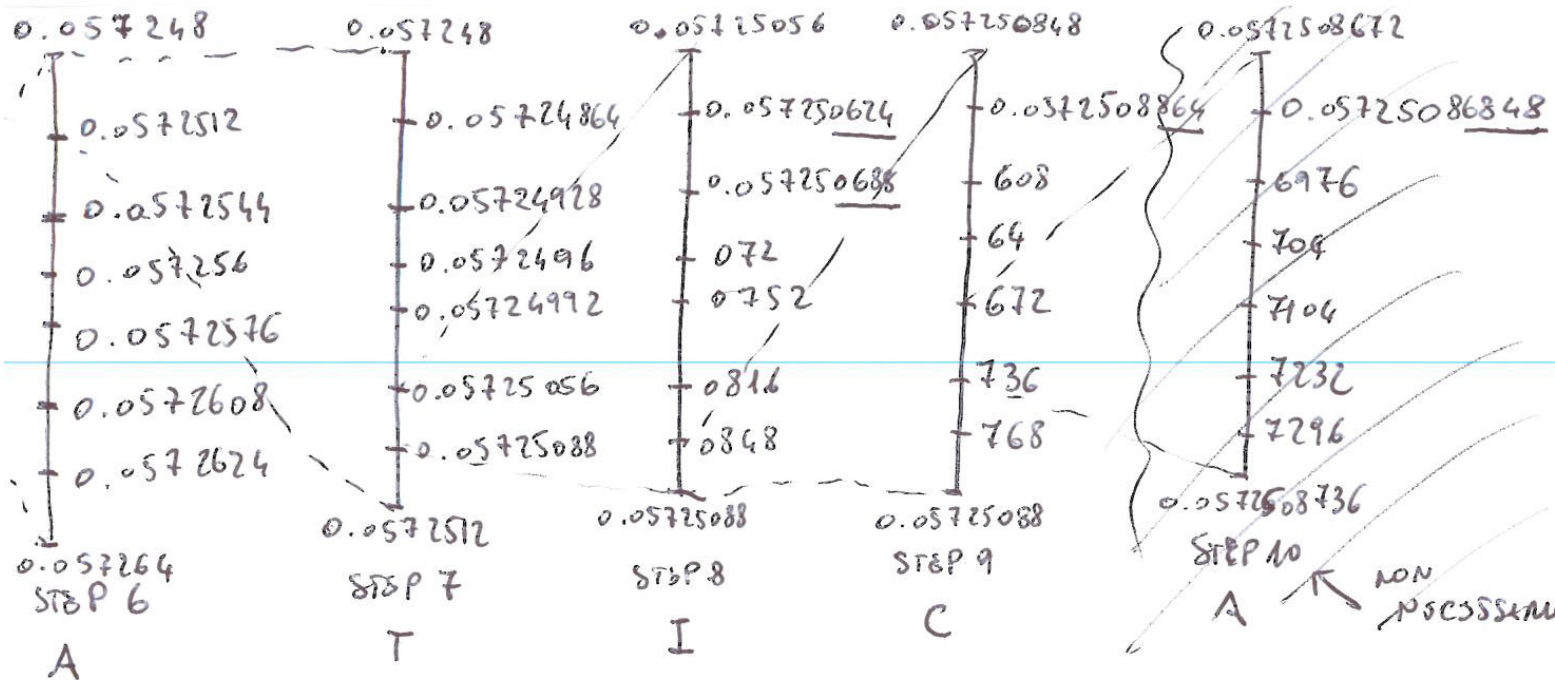 0.057248
0.0572512
0.0572544
0.057256
0.0572576
0.0572608
0.0572624
0.057264
STEP 6
A
0.057248
0.05724864
0.05724928
0.0572496
0.05724992
0.05725056
0.05725088
0.0572512
STEP 7
T
0.05725056
0.057250624
0.057250688
072
0752
0816
0848
0.05725088
STEP 8
I
0.057250848
0.0572508864
608
64
672
736
768
0.05725088
STEP 9
C
0.0572508672
0.05725086848
6976
704
7104
7232
7296
0.0572508736
STEP 10
A
NON